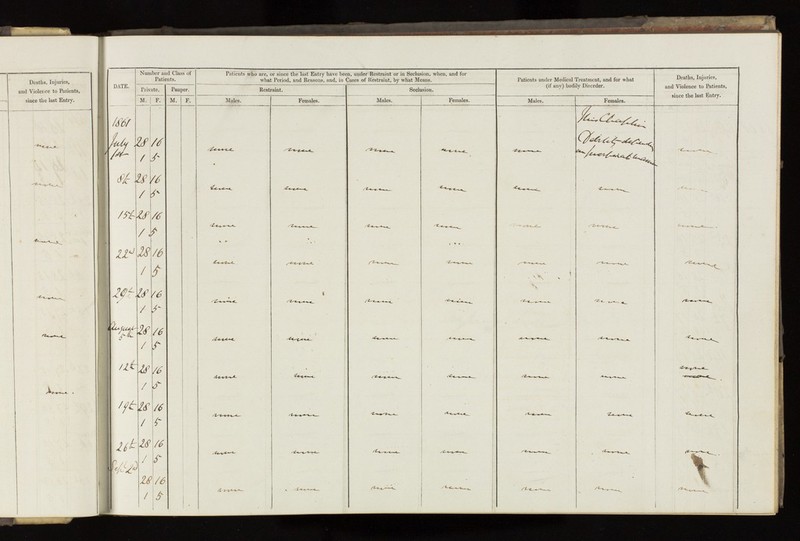 Deaths, Injuries,
and Violence to Patients,
since the last Entry.
none
none
none
none
none
none.
DATE.
Number and Class of
Patients.
Private. Pauper.
M. F. M. F.
Patients who are, or since the last Entry have been, under Restraint or in Seclusion, when, and for
what Period, and Reasons, and, in Cases of Restraint, by what Means.
Restraint. Seclusion.
Males. Females. Males. Females.
Patients under Medical Treatment, and for what
(if any) bodily Disorder.
Males. Females.
Deaths, Injuries,
and Violence to Patients,
since the last Entry.
1861
July 28 16 none none none none none none
1 5
8th 28 16 none none none none none none none
1 5
15th 28 16 none none none none none none none
1 5
22d 28 16 none none none none none none none
1 5
29th 28 16 none none none none none none none
1 5
August 5th 28 16 none none none none none none none
1 5
12th 28 16 none none none none none none none
1 5
19th 28 16 none none none none none none none
1 5
26th 28 16 none none none none none none none
1 5
Sept 2d
28 16 none none none none none none none
1 5